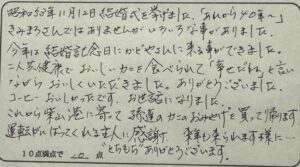 昭和52年11月12日結婚式を挙げました。「あれから40年〜」
きみまろさんではありませんがいろいろな事がありました。
今年は結婚記念日にかどやさんに来る事ができました。
二人共健康でおいしいカニを食べられて「幸せだね」と言い
ながらおいしくいただきました。ありがとうございました。
コーヒーおいしかったです。お世話になりました。
これから 港に寄って 孫達のカニのおみやげを買って帰ります
運転がんばってくれる主人に感謝 来年も来られます様に…
"とうもろ"ありがとうございます。
10点満点で 点